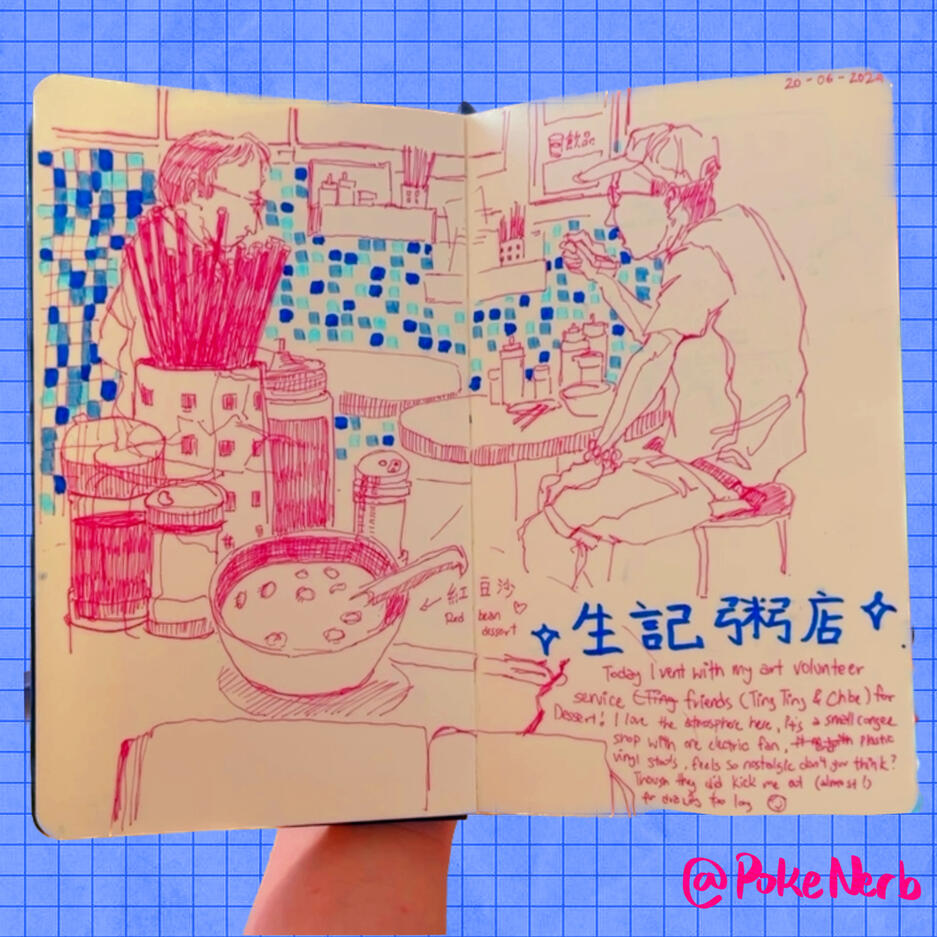 20-06-2024
飲品
紅豆沙
Red bean
dessert
生記粥店
Today I went with my art volunteer
service ETing friends (Ting Ting & Chloe) for
Dessert! I love the atmosphere here, it's a small congee
shop with one electric fan, plastic
vinyl stools, feels so nostalgic don't you think?
Though they did kick me out (almost!)
for drawing too long
@PokeNerb